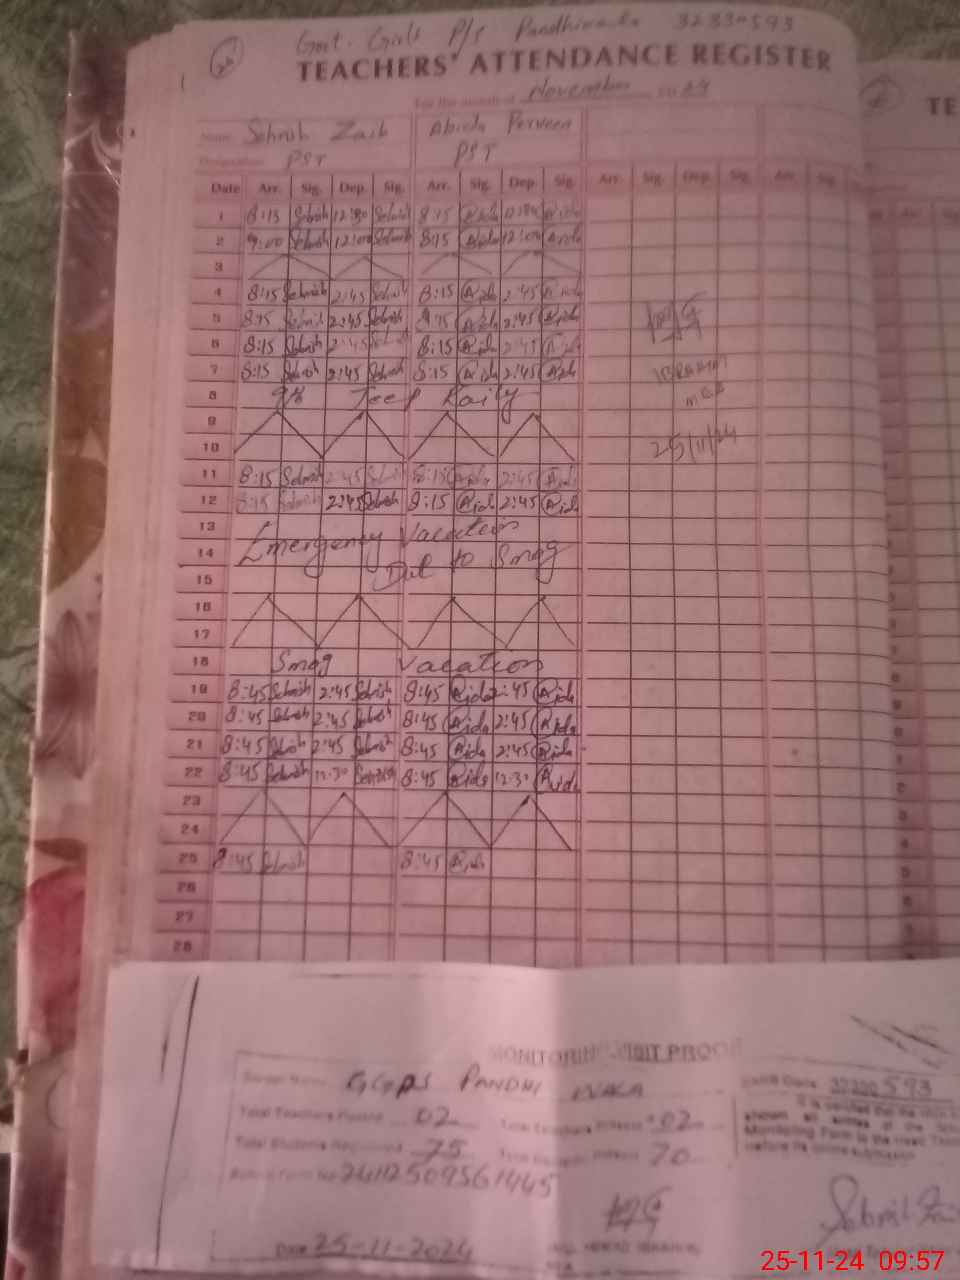 Govt. Girls P/S Pandhiwala 32330593
TEACHERS' ATTENDANCE REGISTER
For the month of November 2024
Name Sehrish Zaib Abida Perveen
Designation PST PST
Date Arr. Sig. Dep. Sig. Arr. Sig. Dep. Sig. Arr. Sig. Dep. Sig. Arr. Sig.
1 8:15 Sehrish 12:30 Sehrish 8:15 Aida Aida
2 9:00 Sehrish 12:00 Sehrish 8:15 Aida 12:00 Aida
3
4 8:15 Sehrish 2:45 Sehrish 8:15 Aida 2:45 Aida
5 8:15 Sehrish 2:45 Sehrish 8:15 Aida 2:45 Aida
6 8:15 Sehrish 2:45 Sehrish 8:15 Aida 2:45 Aida
7 8:15 Sehrish 2:45 Sehrish 8:15 Aida 2:45 Aida
8
9
10
11 8:15 Sehrish 2:45 Sehrish 8:15 Aida 2:45 Aida
12 8:15 Sehrish 2:45 Sehrish 8:15 Aida 2:45 Aida
13 Emergency Vacation
14 Due to Smog
15
16
17
18 Smog Vacation
19 8:45 Sehrish 2:45 Sehrish 8:45 Aida 2:45 Aida
20 8:45 Sehrish 2:45 Sehrish 8:45 Aida 2:45 Aida
21 8:45 Sehrish 2:45 Sehrish 8:45 Aida 2:45 Aida
22 8:45 Sehrish 12:30 Sehrish 8:45 Aida 12:30 Aida
23
24
25 8:45 Sehrish 8:45 Aida
26
27
28
IBRAHIM
MEA
25/11/24
TE
MONITORING VISIT PROOF
School Name GGPS PANDHI WALA
EMIS Code 32330593
Total Teachers Posted 02 Total Teachers Present 02
Total Students Registered 75 Total Students Present 70
24112509561445
Date 25-11-2024
Sehrish Zaib
25-11-24 09:57